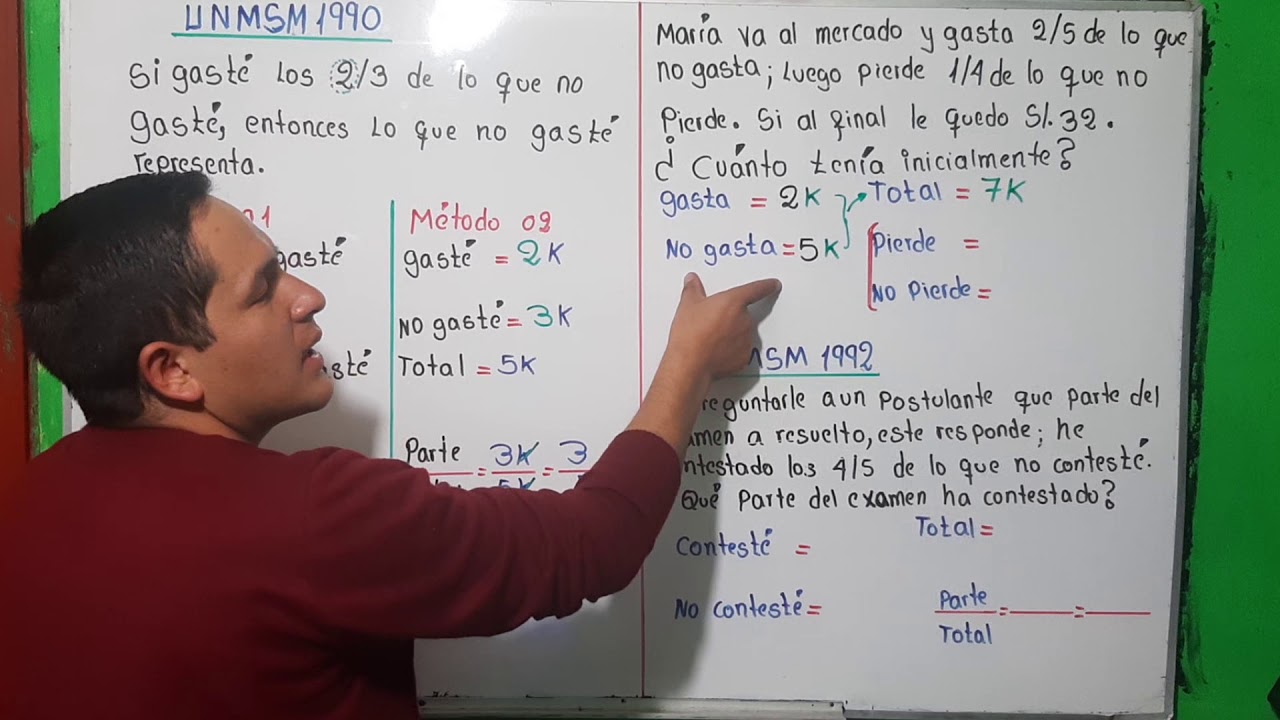 UNMSM 1990
Si gasté los 2/3 de lo que no
gasté, entonces lo que no gasté
representa.
1
gasté
sté
Método 02
gasté = 2K
No gasté = 3K
Total = 5K
Parte = 3K = 3
5K
María va al mercado y gasta 2/5 de lo que
no gasta; Luego pierde 1/4 de lo que no
Pierde. Si al final le quedo S/. 32.
¿ Cuánto tenía inicialmente?
gasta = 2K
Total = 7K
No gasta = 5K
Pierde =
No Pierde =
MSM 1992
reguntarle a un Postulante que parte del
amen a resuelto, este responde; he
ntestado los 4/5 de lo que no contesté.
Qué parte del examen ha contestado?
Contesté =
Total =
No contesté =
Parte = =
Total